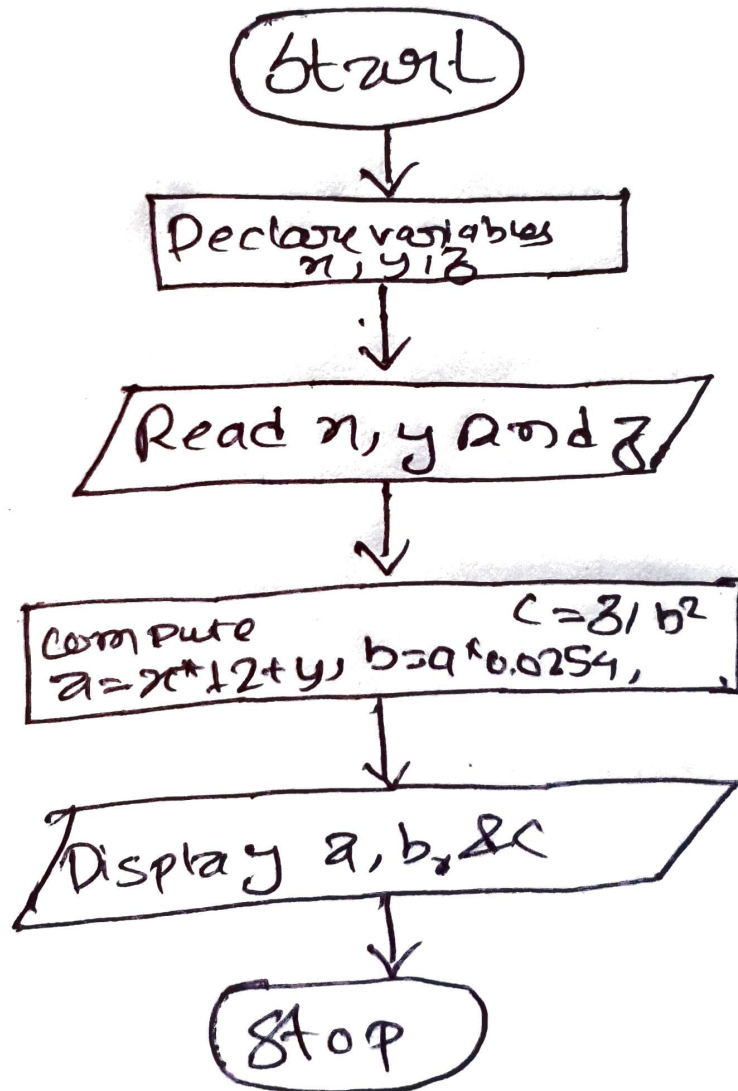 Start
Declare variables
x, y, z
Read x, y and z
compute
c = z / b²
a = x * 12 + y, b = a * 0.0254,
Display a, b, &c
Stop